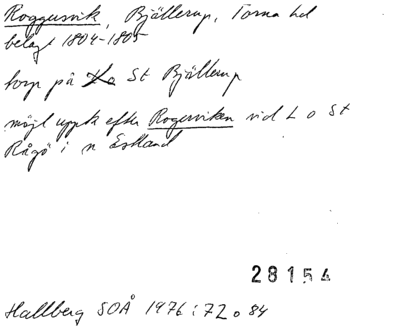 Roggusvik, Bjällerup, Torna hd
belagt 1804-1805
torp på St Bjällerup
möjl uppk efter Rogersviken vid L o St
Rågö i n Estland
28154
Hallberg SOÅ 1976:72 o 84